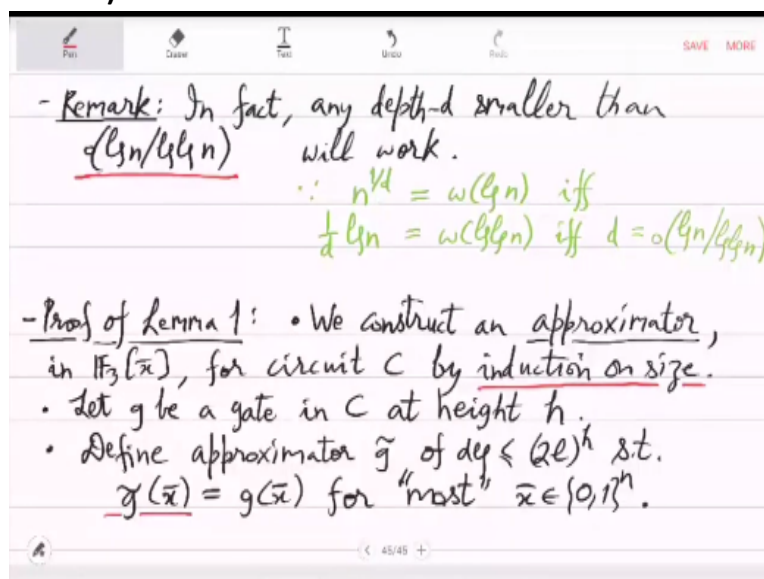 Pen Eraser Text Undo Redo SAVE MORE
- Remark: In fact, any depth-d smaller than
o(lgn/lglgn) will work.
∵ n^{1/d} = ω(lgn) iff
1/d lgn = ω(lglgn) iff d = o(lgn/lglgn)
- Proof of Lemma 1: • We construct an approximator,
in 𝔽₃[x̄], for circuit C by induction on size.
• Let g be a gate in C at height h.
• Define approximator g̃ of deg ≤ (2l)^h s.t.
g̃(x̄) = g(x̄) for "most" x̄ ∈ {0,1}ⁿ.
< 45/45 +